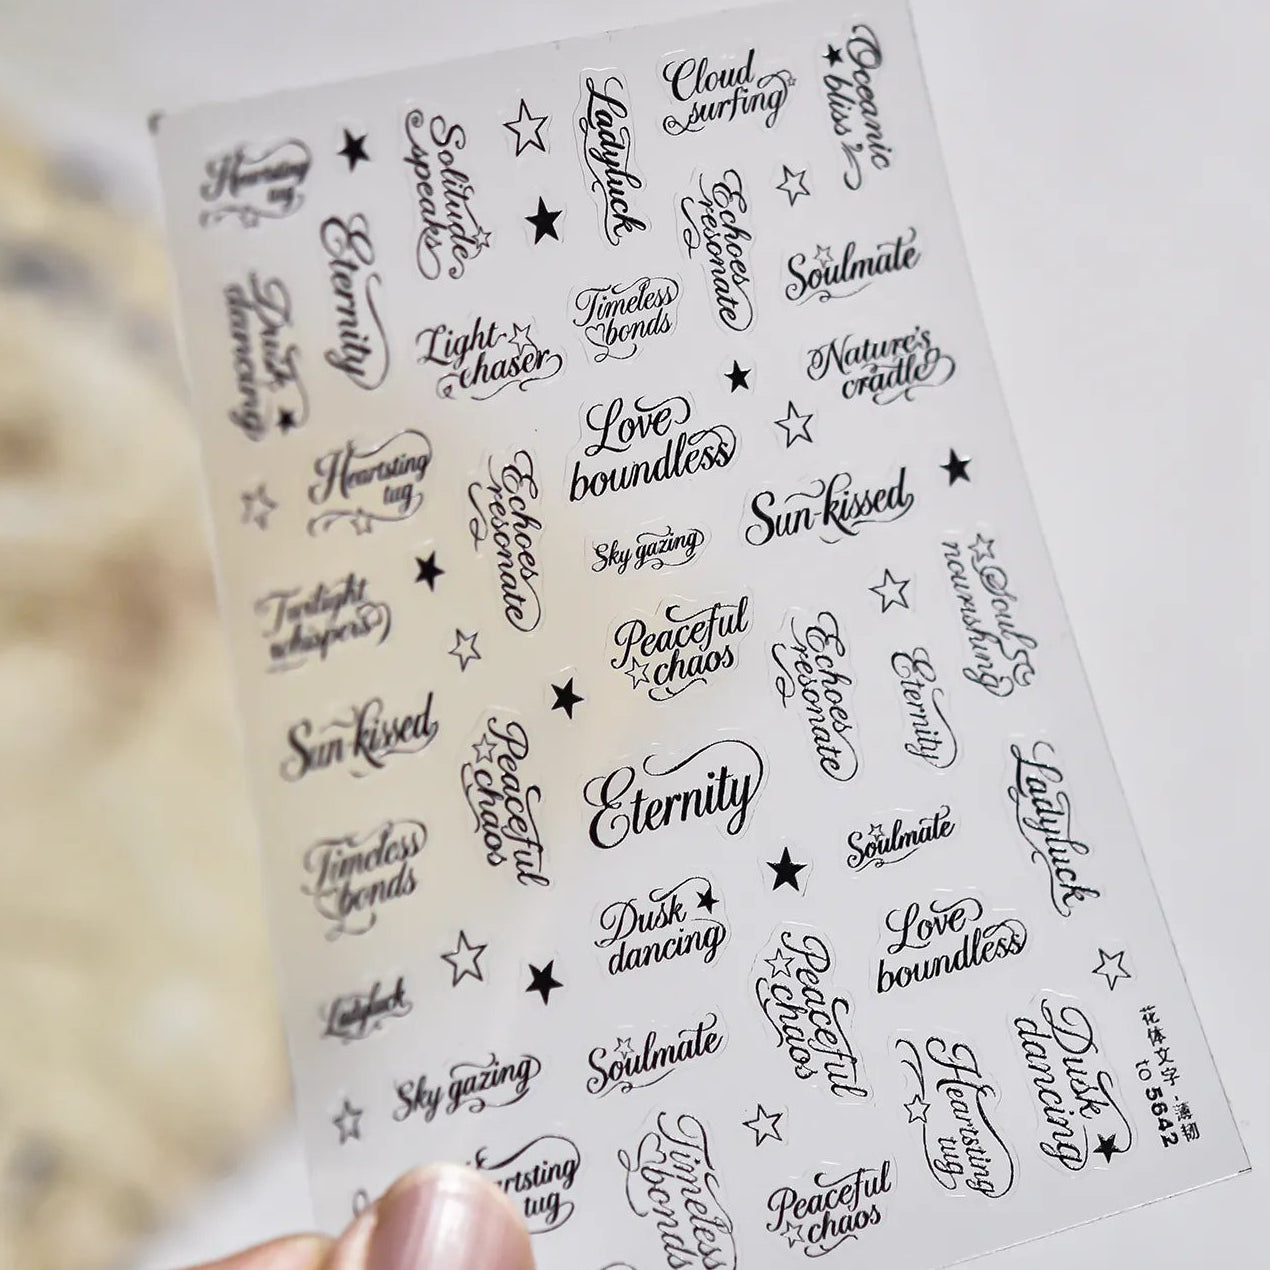 Cloud
surfing
Oceanic
bliss
Ladyluck
Solitude
speaks
Heartsting
tug
Eternity
Echoes
resonate
Soulmate
Timeless
bonds
Light-
chaser
Nature's
cradle
Dusk
dancing
Love
boundless
Heartsting
tug
Echoes
resonate
Sun-kissed
Sky gazing
Soul
nourishing
Twilight
whispers
Peaceful
chaos
Echoes
resonate
Eternity
Sun-kissed
Peaceful
chaos
Eternity
Ladyluck
Soulmate
Timeless
bonds
Dusk
dancing
Love
boundless
Peaceful
chaos
Ladyluck
Soulmate
Sky gazing
Heartsting
tug
Dusk
dancing
花体文字·薄韧
to 5642
artsting
tug
Timeless
bonds
Peaceful
chaos